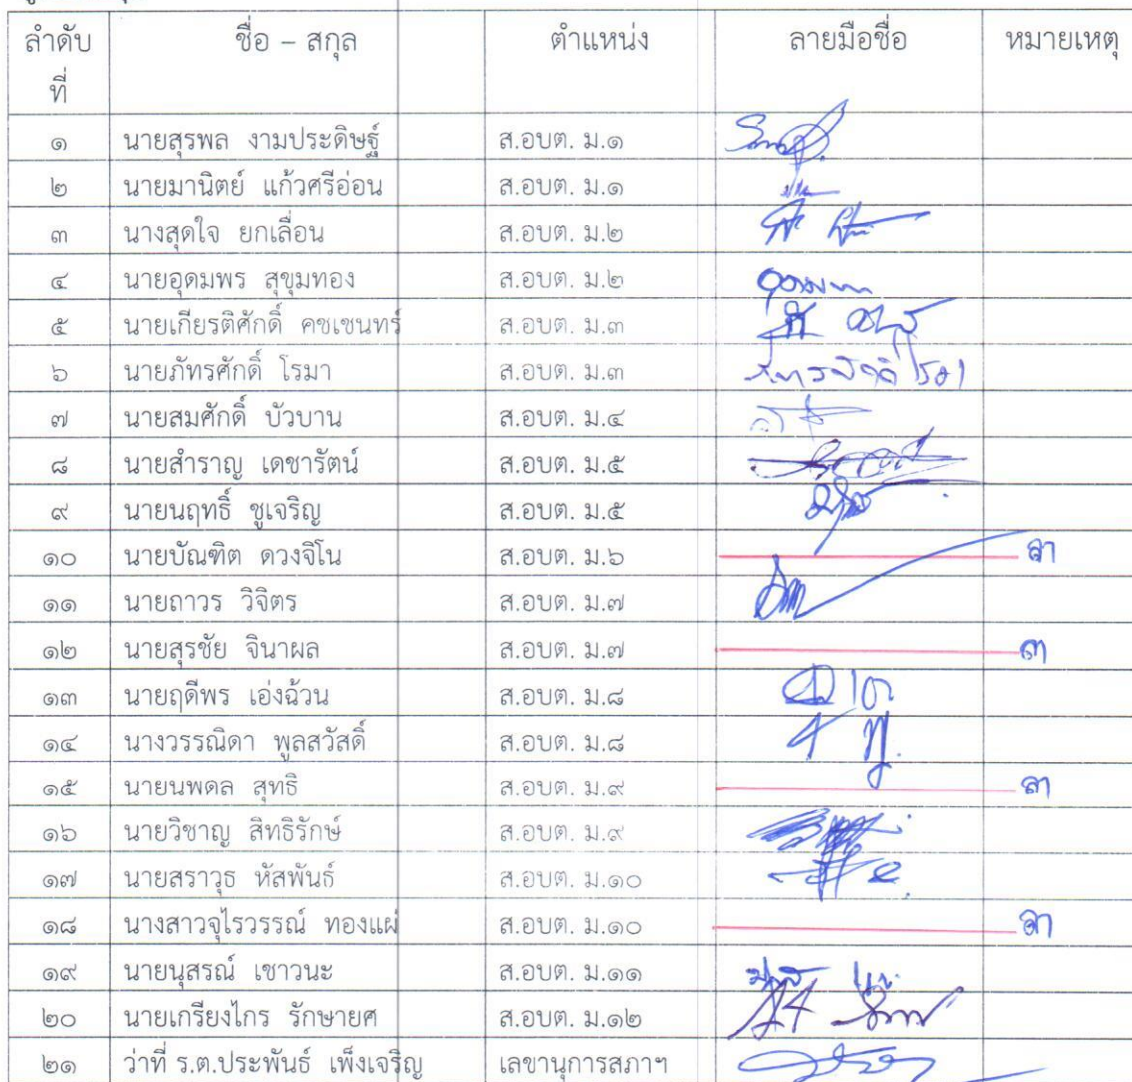 ลำดับที่ ชื่อ – สกุล ตำแหน่ง ลายมือชื่อ หมายเหตุ
๑ นายสุรพล งามประดิษฐ์ ส.อบต. ม.๑
๒ นายมานิตย์ แก้วศรีอ่อน ส.อบต. ม.๑
๓ นางสุดใจ ยกเลื่อน ส.อบต. ม.๒
๔ นายอุดมพร สุขุมทอง ส.อบต. ม.๒
๕ นายเกียรติศักดิ์ คชเชนทร์ ส.อบต. ม.๓
๖ นายภัทรศักดิ์ โรมา ส.อบต. ม.๓
๗ นายสมศักดิ์ บัวบาน ส.อบต. ม.๔
๘ นายสำราญ เดชารัตน์ ส.อบต. ม.๕
๙ นายนฤทธิ์ ชูเจริญ ส.อบต. ม.๕
๑๐ นายบัณฑิต ดวงจิโน ส.อบต. ม.๖ ลา
๑๑ นายถาวร วิจิตร ส.อบต. ม.๗
๑๒ นายสุรชัย จินาผล ส.อบต. ม.๗ ลา
๑๓ นายฤดีพร เอ่งฉ้วน ส.อบต. ม.๘
๑๔ นางวรรณิดา พูลสวัสดิ์ ส.อบต. ม.๘
๑๕ นายนพดล สุทธิ ส.อบต. ม.๙ ลา
๑๖ นายวิชาญ สิทธิรักษ์ ส.อบต. ม.๙
๑๗ นายสราวุธ หัสพันธ์ ส.อบต. ม.๑๐
๑๘ นางสาวจุไรวรรณ์ ทองแผ่ ส.อบต. ม.๑๐ ลา
๑๙ นายนุสรณ์ เชาวนะ ส.อบต. ม.๑๑
๒๐ นายเกรียงไกร รักษายศ ส.อบต. ม.๑๒
๒๑ ว่าที่ ร.ต.ประพันธ์ เพ็งเจริญ เลขานุการสภาฯ